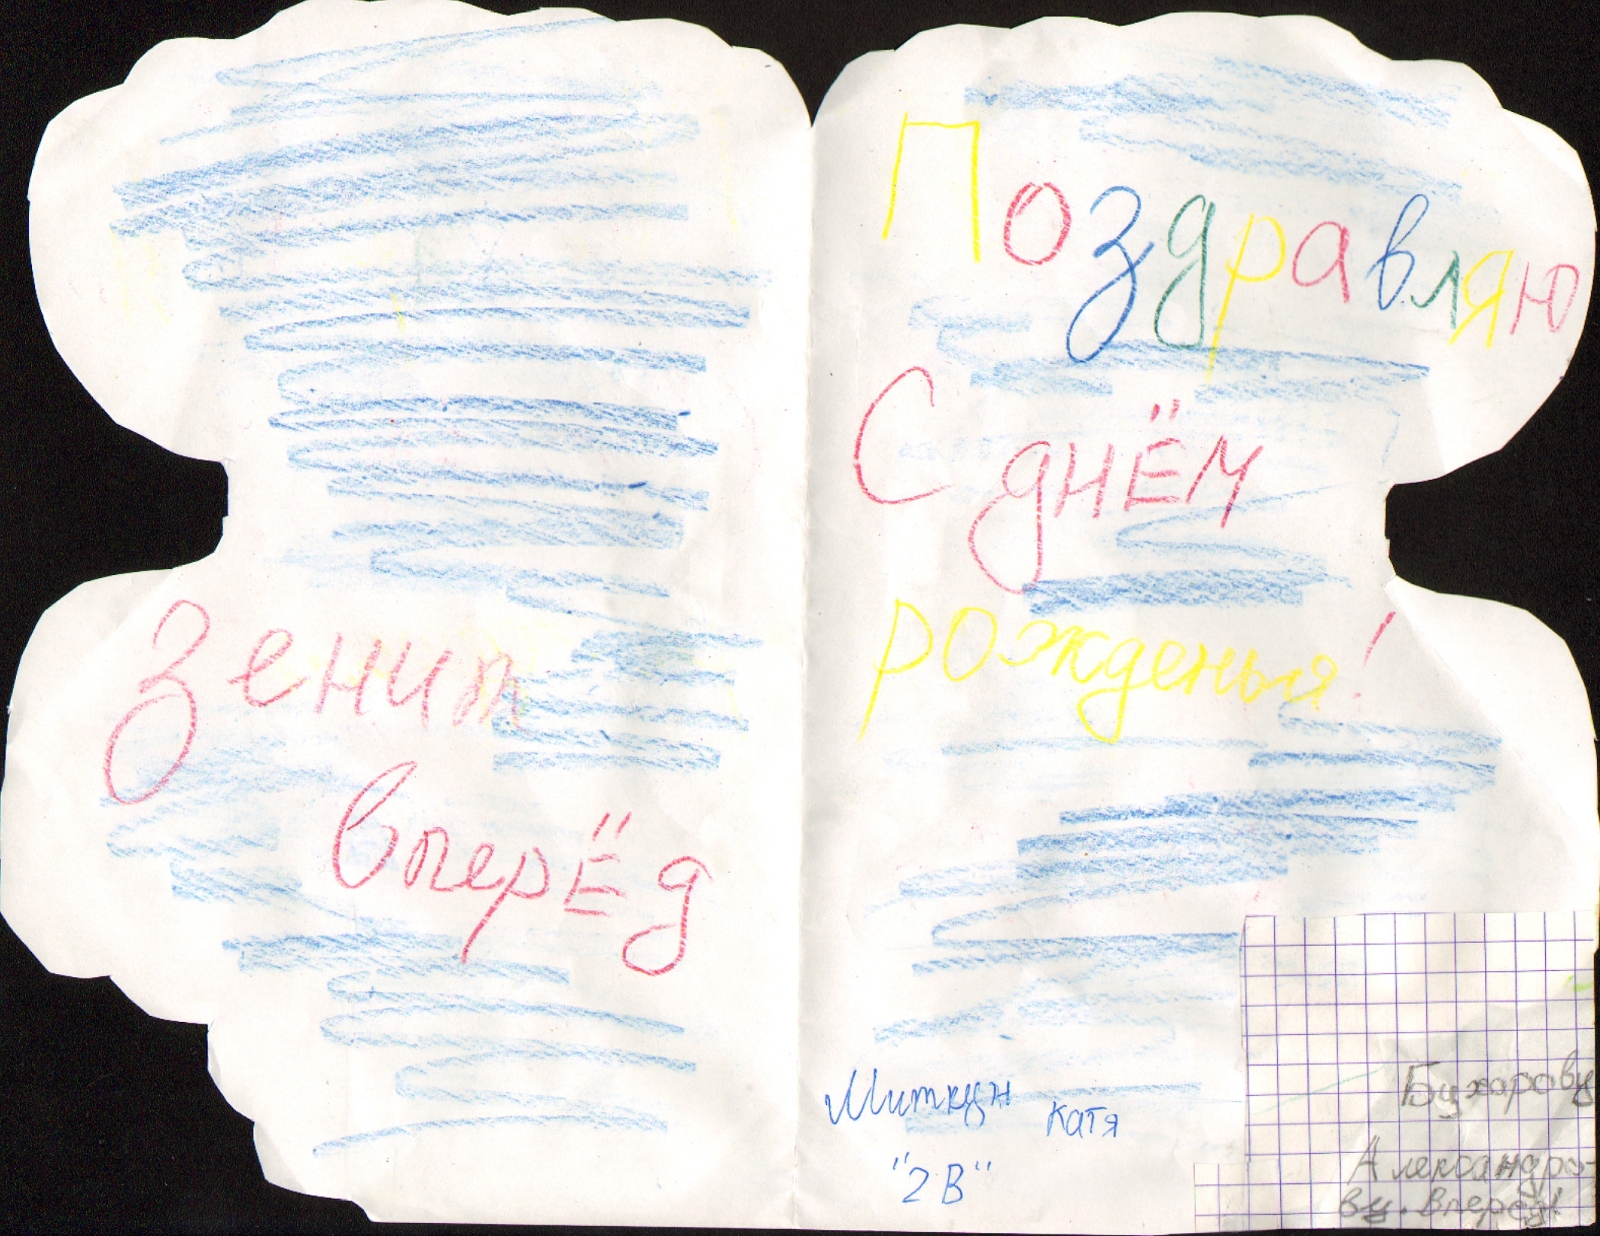 Зенит
вперЁд
Поздравляю
С днЁм
рожденья!
Миткин Катя
"2 В"
Бухарову
Александро-
ву. вперёд!